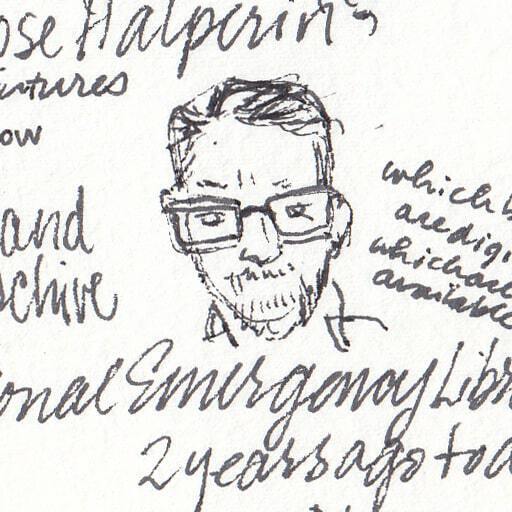 ose Halperin
utures
ow
and
chive
which b
are digi
which are
available
onal Emergency Libr
2 years ago toda